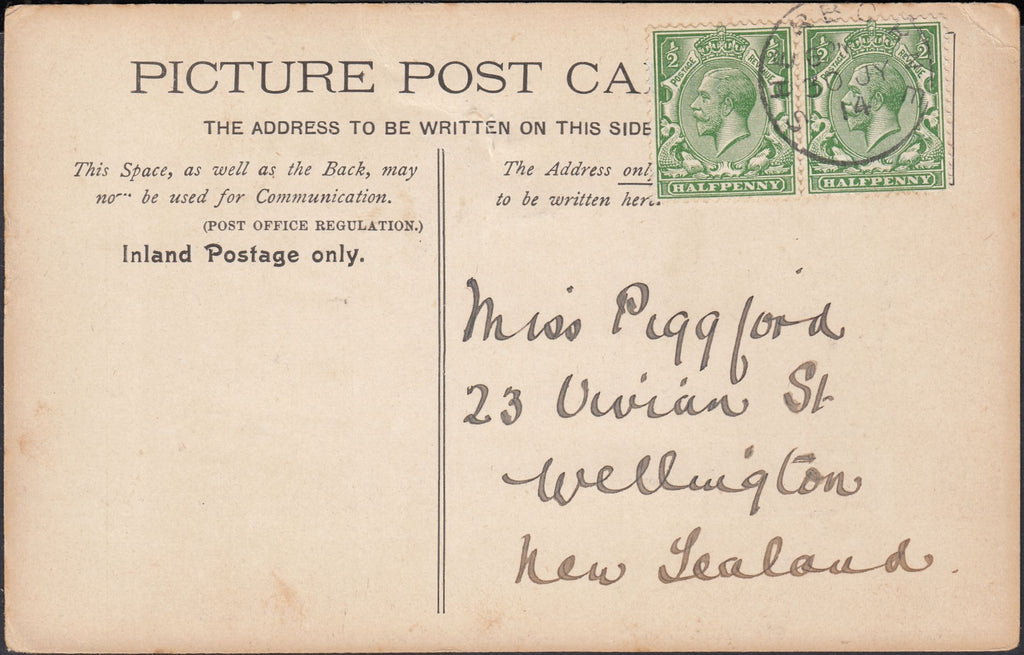 PICTURE POST CA
THE ADDRESS TO BE WRITTEN ON THIS SIDE
This Space, as well as the Back, may
now be used for Communication.
(POST OFFICE REGULATION.)
Inland Postage only.
The Address only
to be written here.
½ ½
POSTAGE REVENUE
HALFPENNY
½ ½
POSTAGE REVENUE
HALFPENNY
30 JY
14
Miss Piggford
23 Vivian St
Wellington
New Zealand.